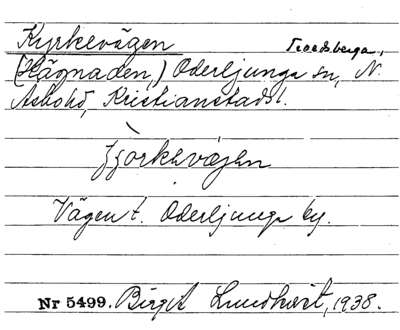 Kyrkevägen Troedsberga,
(Hägnaden,) Oderljunga sn, N.
Åsbo hd, Kristianstads l.
Vägen t. Oderljunga by.
Nr 5499. Birgit Lundkvist, 1938.